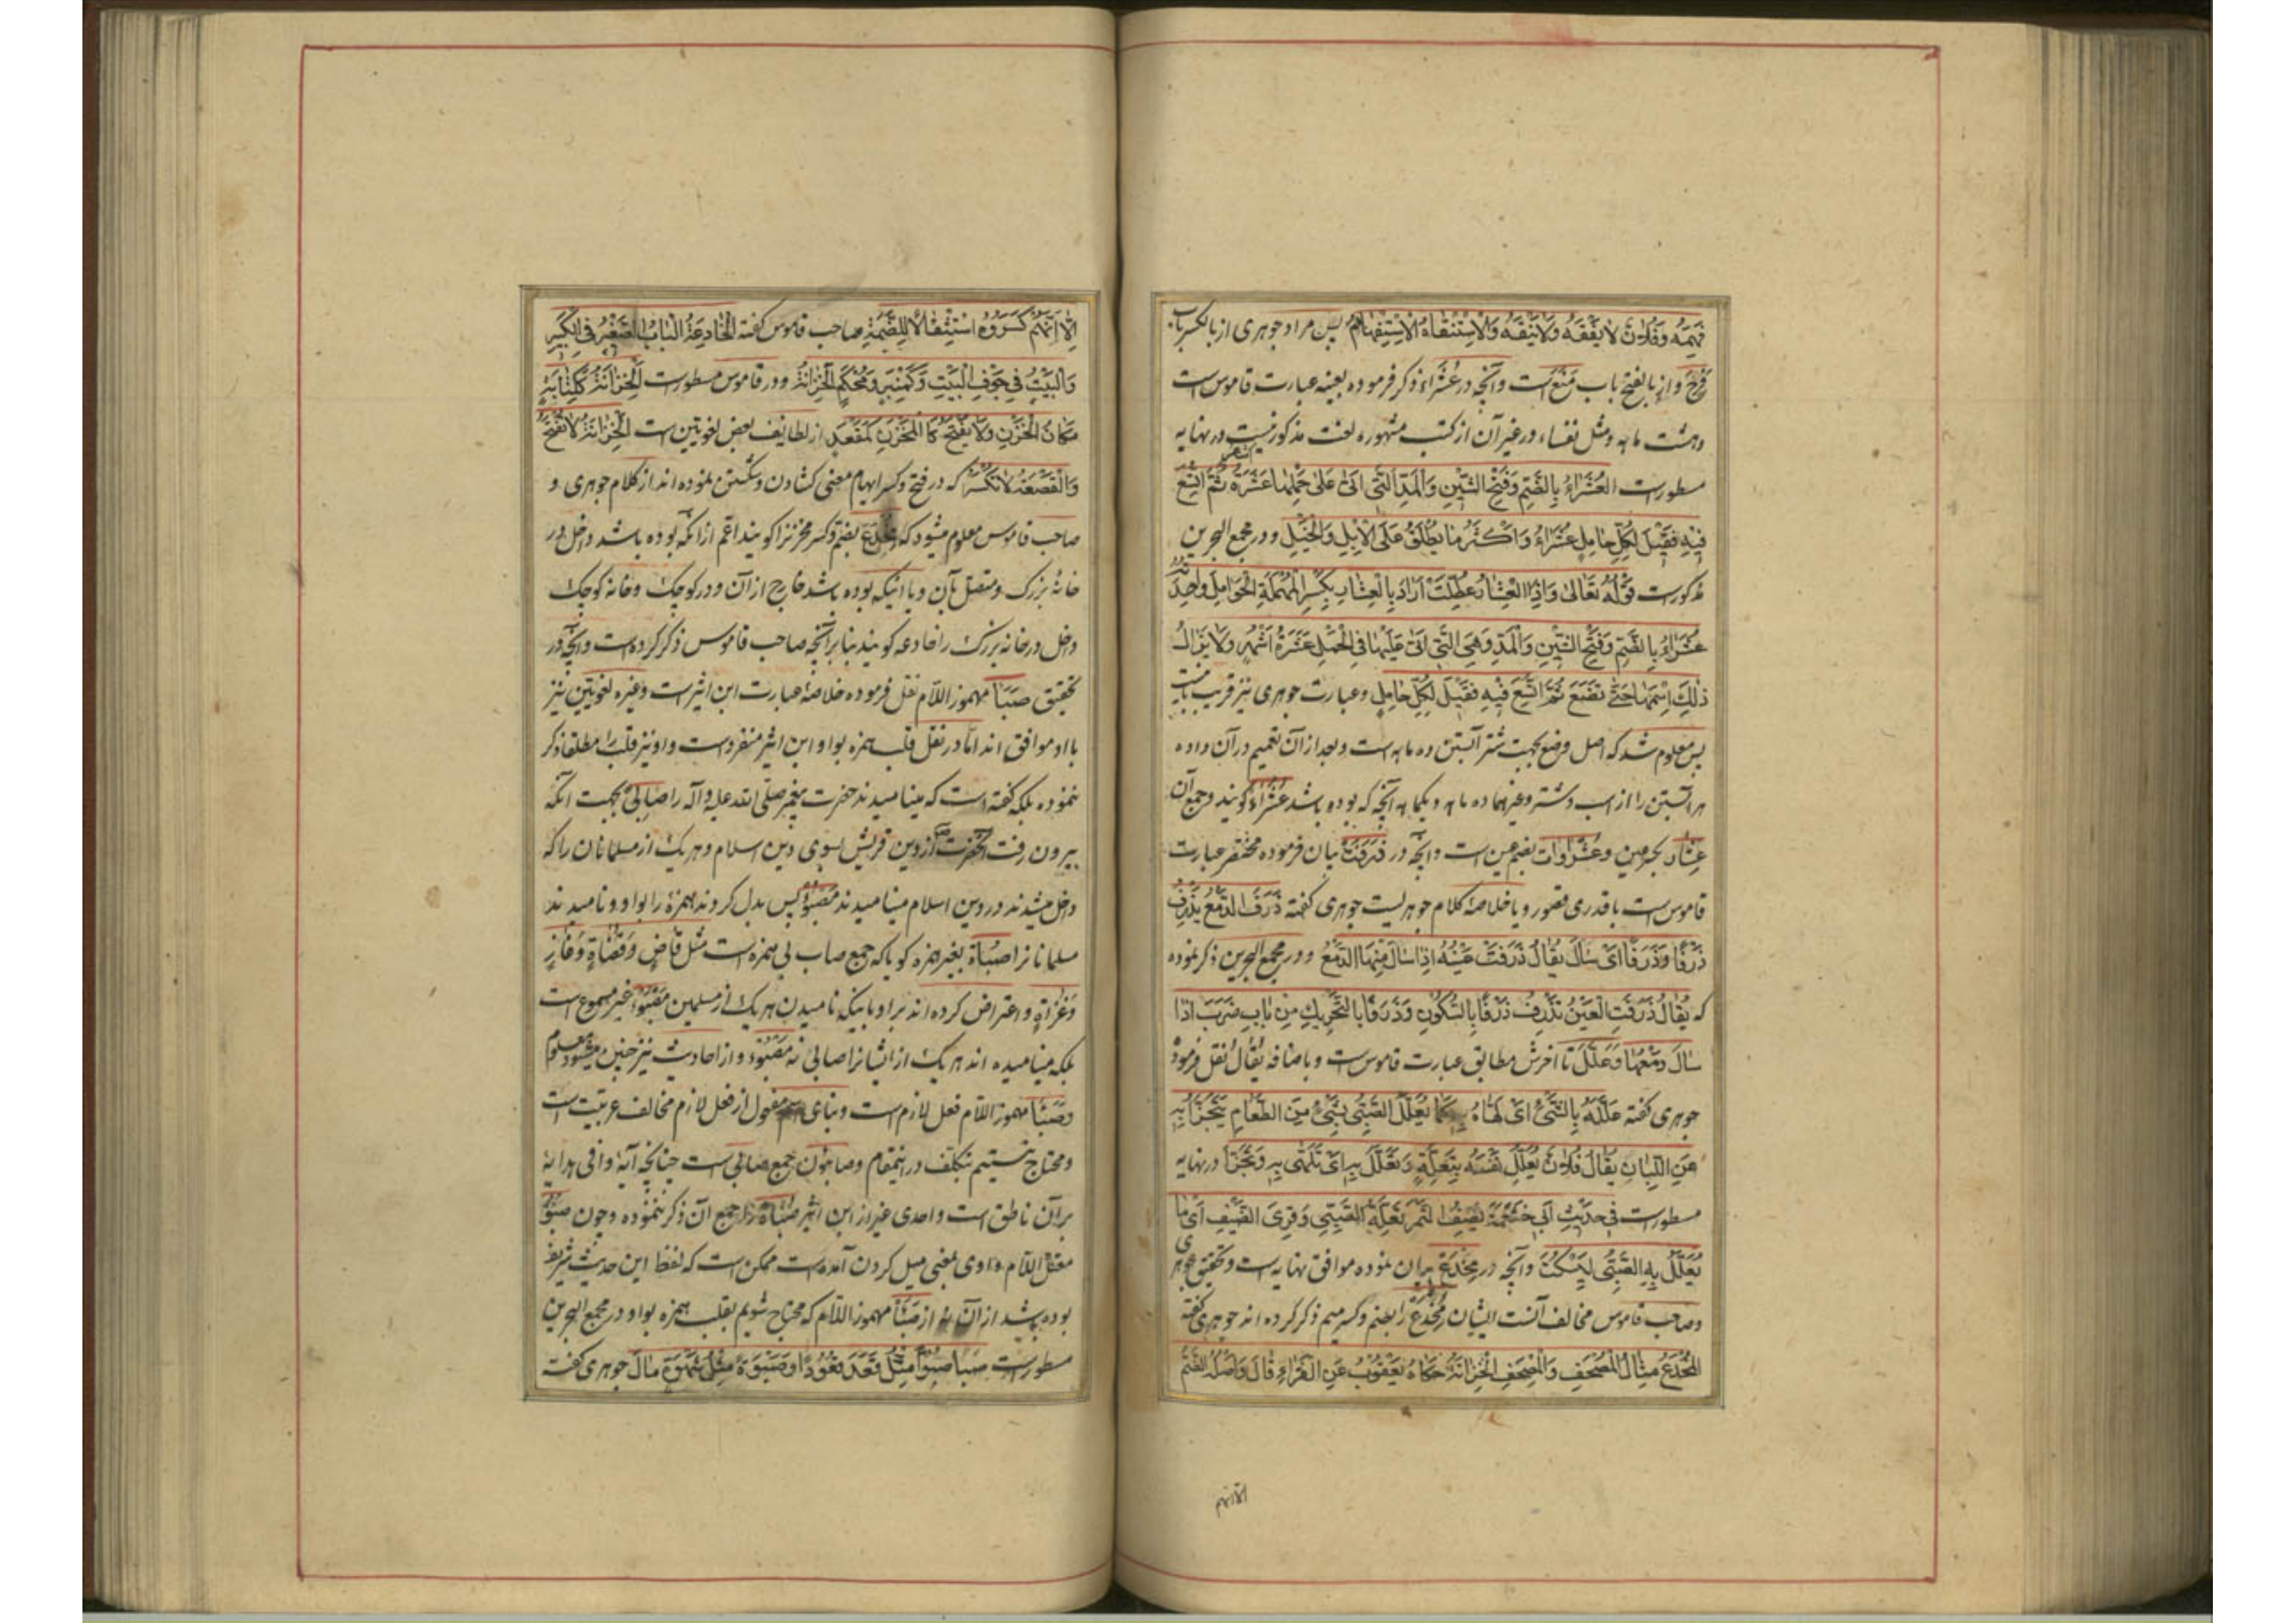 فَهِمَهُ وَفُلَانٌ لَا يَفْقَهُ وَلَا يَنْقَهُ وَالْاِسْتِنْقَاهُ الْاِسْتِفْهَامُ پس مراد جوهری از بالکسر باب
فرح و از بالفتح باب منع است و آنچه در عُشَرَاءُ ذکر فرموده بعینه عبارت قاموس است
و هشت ماهه و مثل نفساء در غیر آن از کتب مشهوره لغت مذکور نیست در نهایه
مسطور است العُشَرَاءُ بِالضَّمِّ وَفَتْحِ الشِّينِ وَالْمَدِّ الَّتِي اَتَىٰ عَلَىٰ حَمْلِهَا عَشَرَةُ ثُمَّ اتُّسِعَ
فِيهِ فَقِيلَ لِكُلِّ حَامِلٍ عُشَرَاءُ وَاَكْثَرُ مَا يُطْلَقُ عَلَى الْاِبِلِ وَالْخَيْلِ و در مجمع البحرین
مذکور است قَوْلُهُ تَعَالىٰ وَاِذَا الْعِشَارُ عُطِّلَتْ اَرَادَ بِالْعِشَارِ بِكَسْرِ الْمُهْمَلَةِ الْحَوَامِلَ وَاحِدَتُهُ
عُشَرَاءُ بِالضَّمِّ وَفَتْحِ الشِّينِ وَالْمَدِّ وَهِيَ الَّتِي اَتىٰ عَلَيْهَا فِي الْحَمْلِ عَشَرَةُ اَشْهُرٍ وَلَا يَزَالُ
ذٰلِكَ اِسْمَهَا حَتّٰى تَضَعَ ثُمَّ اتُّسِعَ فِيهِ فَقِيلَ لِكُلِّ حَامِلٍ و عبارت جوهری نیز قریب باینست
پس معلوم شد که اصل وضع بجهت شتر آبستن ده ماهه است و بعد از آن تعمیم در آن داده
هر آبستن را از اسب و شتر و غیرهما ده ماهه و یکماهه آنچه که بوده باشد عُشَرَاءُ گویند و جمع آن
عِشَار بکسر عین و عُشَرَاوَات بضم عین است و آنچه در ذَرَفَتْ بیان فرموده مختصر عبارت
قاموس است باقدری قصور و یا خلاصهٔ کلام جوهریست جوهری گفته ذَرَفَ الدَّمْعُ يَذْرِفُ
ذَرْفًا وَذَرَفًا اَىْ سَالَ يُقَالُ ذَرَفَتْ عَيْنُهُ اِذَا سَالَ مِنْهَا الدَّمْعُ و در مجمع البحرین ذکر نموده
که يُقَالُ ذَرَفَتِ الْعَيْنُ تَذْرِفُ ذَرْفًا بِالسُّكُونِ وَذَرَفًا بِالتَّحْرِيكِ مِنْ بَابِ ضَرَبَ اِذَا
سَالَ دَمْعُهَا وَعَلَّلَ تا آخرش مطابق عبارت قاموس است و باضافه يُقَالُ نقل فرموده
جوهری گفته عَلَّلَهُ بِالشَّىْءِ اَىْ لَهَّاهُ بِهِ كَمَا يُعَلَّلُ الصَّبِىُّ بِشَىْءٍ مِنَ الطَّعَامِ يَتَجَزَّأُ بِهِ
عَنِ اللَّبَنِ يُقَالُ فُلَانٌ يُعَلِّلُ نَفْسَهُ بِتَعِلَّةٍ وَتَعَلَّلَ بِهِ اَىْ تَلَهّىٰ بِهِ وَتَجَزَّأَ در نهایه
مسطور است فِي حَدِيثِ اَبِي حَثْمَةَ يَصِفُ التَّمْرَ تَعِلَّةُ الصَّبِىِّ وَقِرَى الضَّيْفِ اَىْ مَا
يُعَلَّلُ بِهِ الصَّبِىُّ لِيَسْكُتَ و آنچه در مِخْدَعٍ بیان نموده موافق نهایه است و تحقیق جوهری
و صاحب قاموس مخالف آنست ایشان مخدع را بضم و کسر میم ذکر کرده اند جوهری گفته
الْمُخْدَعُ مِثَالُ الْمُصْحَفِ وَالْمِصْحَفِ الْخِزَانَةُ حَكَاهُ يَعْقُوبُ عَنِ الْفَرَّاءِ قَالَ وَاَصْلُهُ الضَّمُّ
الّا انّهم
اِلَّا اَنَّهُمْ كَسَرُوهُ اسْتِثْقَالًا لِلضَّمَّةِ صاحب قاموس گفته الْخَادِعَةُ الْبَابُ الصَّغِيرُ فِي الْكَبِيرِ
وَالْبَيْتُ فِي جَوْفِ الْبَيْتِ وَكَمِنْبَرٍ وَمُحْكَمٍ الْخِزَانَةُ و در قاموس مسطور است الْخِزَانَةُ كَكِتَابَةٍ
مَكَانُ الْخَزْنِ وَلَا يُفْتَحُ كَالْمَخْزَنِ كَمَقْعَدٍ از لطایف بعض لغویین است الْخِزَانَةُ لَا تُفْتَحُ
وَالْقَصْعَةُ لَا تُكْسَرُ که در فتح و کسر ایهام معنی کشادن و شکستن نموده اند از کلام جوهری و
صاحب قاموس معلوم میشود که مخدع بضم و کسر مخزنرا گویند اعم از آنکه بوده باشد داخل در
خانهٔ بزرگ و متصل بآن و یا اینکه بوده باشد خارج از آن و در کوچک و خانه کوچک
داخل در خانه بزرگ را خادعه گویند بنا بر آنچه صاحب قاموس ذکر کرده است و آنچه در
تحقیق صَبَأَ مهموز اللّام نقل فرموده خلاصهٔ عبارت ابن اثیر است و غیره لغویّین نیز
با او موافق اند امّا در نقل قلب همزه بواو ابن اثیر منفرد است و او نیز قلب را مطلقا ذکر
ننموده بلکه گفته است که مینامیدند حضرت پیغمبر صلّی الله علیه و آله را صَابِئٌ بجهت آنکه
بیرون رفت آنحضرت از دین قریش بسوی دین اسلام و هر یک از مسلمانان را که
داخل میشدند در دین اسلام مینامیدند مَصْبُوٌّ پس بدل کردند همزه را بواو و نامیدند
مسلمانانرا صُبَاة بغیر همزه گویا که جمع صاب بی همزه است مثل قَاضٍ وَقُضَاةٍ وَغَازٍ
وَغُزَاةٍ و اعتراض کرده اند بر او باینکه نامیدن هر یک از مسلمین مَصْبُوٌّ غیر مسموع است
بلکه مینامیده اند هر یک از ایشانرا صابئ نه مَصْبُوّ و از احادیث نیز چنین معلوم میشود
و صَبَأَ مهموز اللّام فعل لازم است و بنای اسم مفعول از فعل لازم مخالف عربیّت است
و محتاج نیستیم بتکلّف در اینمقام و صابئون جمع صابئ است چنانچه آیهٔ وافی هدایه
بر آن ناطق است و احدی غیر از ابن اثیر صُبَاة را جمع آن ذکر ننموده و چون صَبْوٌ
معتلّ اللّام واوی بمعنی میل کردن آمده است ممکن است که لفظ این حدیث شریف
بوده باشد از آن نه از صَبَأَ مهموز اللّام که محتاج شویم بقلب همزه بواو و در مجمع البحرین
مسطور است صَبَا صُبُوًّا مِثْلُ قَعَدَ قُعُودًا وَصَبْوَةً مِثْلُ شَهْوَةٍ مَالَ جوهری گفت